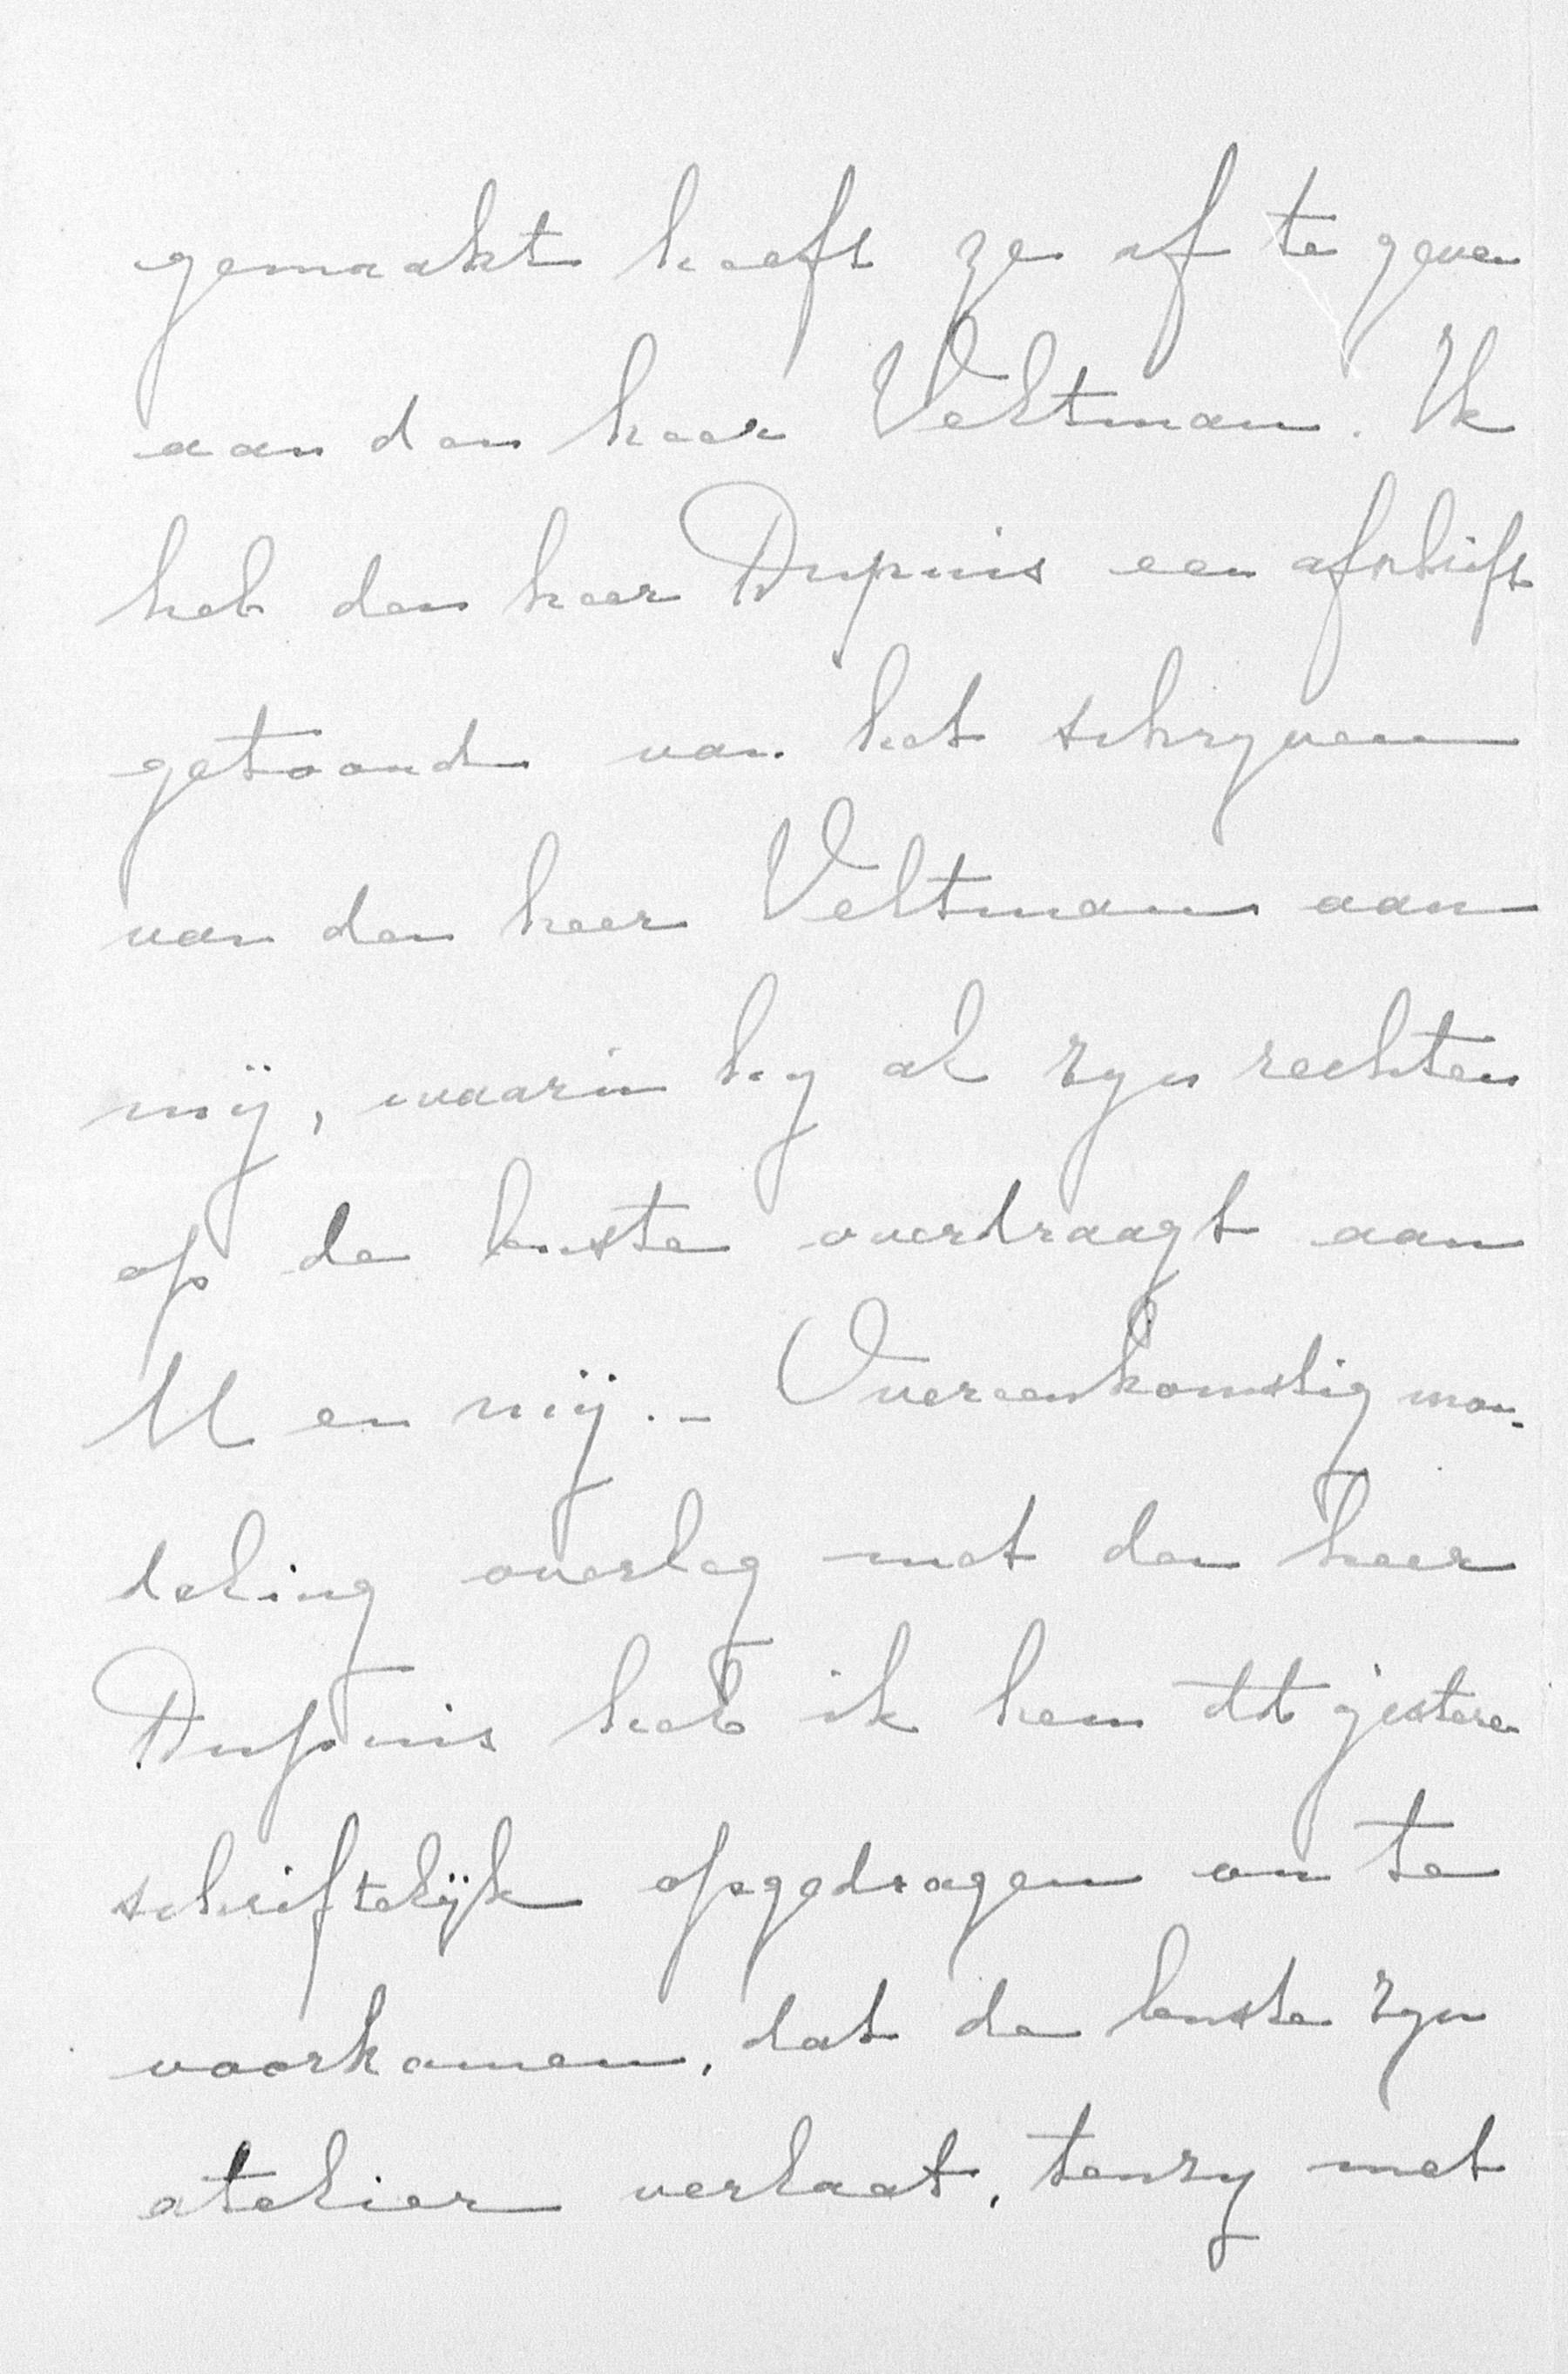 gemaakt heeft ze af te geven
aan den heer Veltman. Ik
heb den heer Dupuis een afschrift
getoond van het schrijven
van den heer Veltman aan
mij, waarin hij al zijn rechten
op de buste overdraagt aan
U en mij. – Overeenkomstig mon-
deling overleg met den heer
Dupuis heb ik hem dit gisteren
schriftelijk opgedragen om te
voorkomen, dat de buste zijn
atelier verlaat, tenzij met